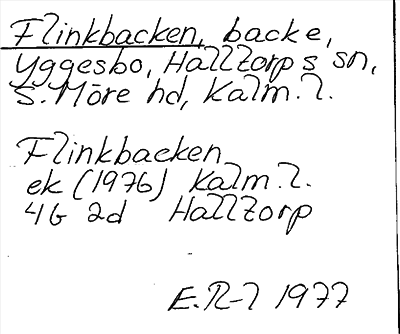 Flinkbacken, backe,
Yggesbo, Halltorps sn,
S. Möre hd, Kalm. l.
Flinkbacken
ek (1976) Kalm. l.
4G 2d Halltorp
E. R-l 1977